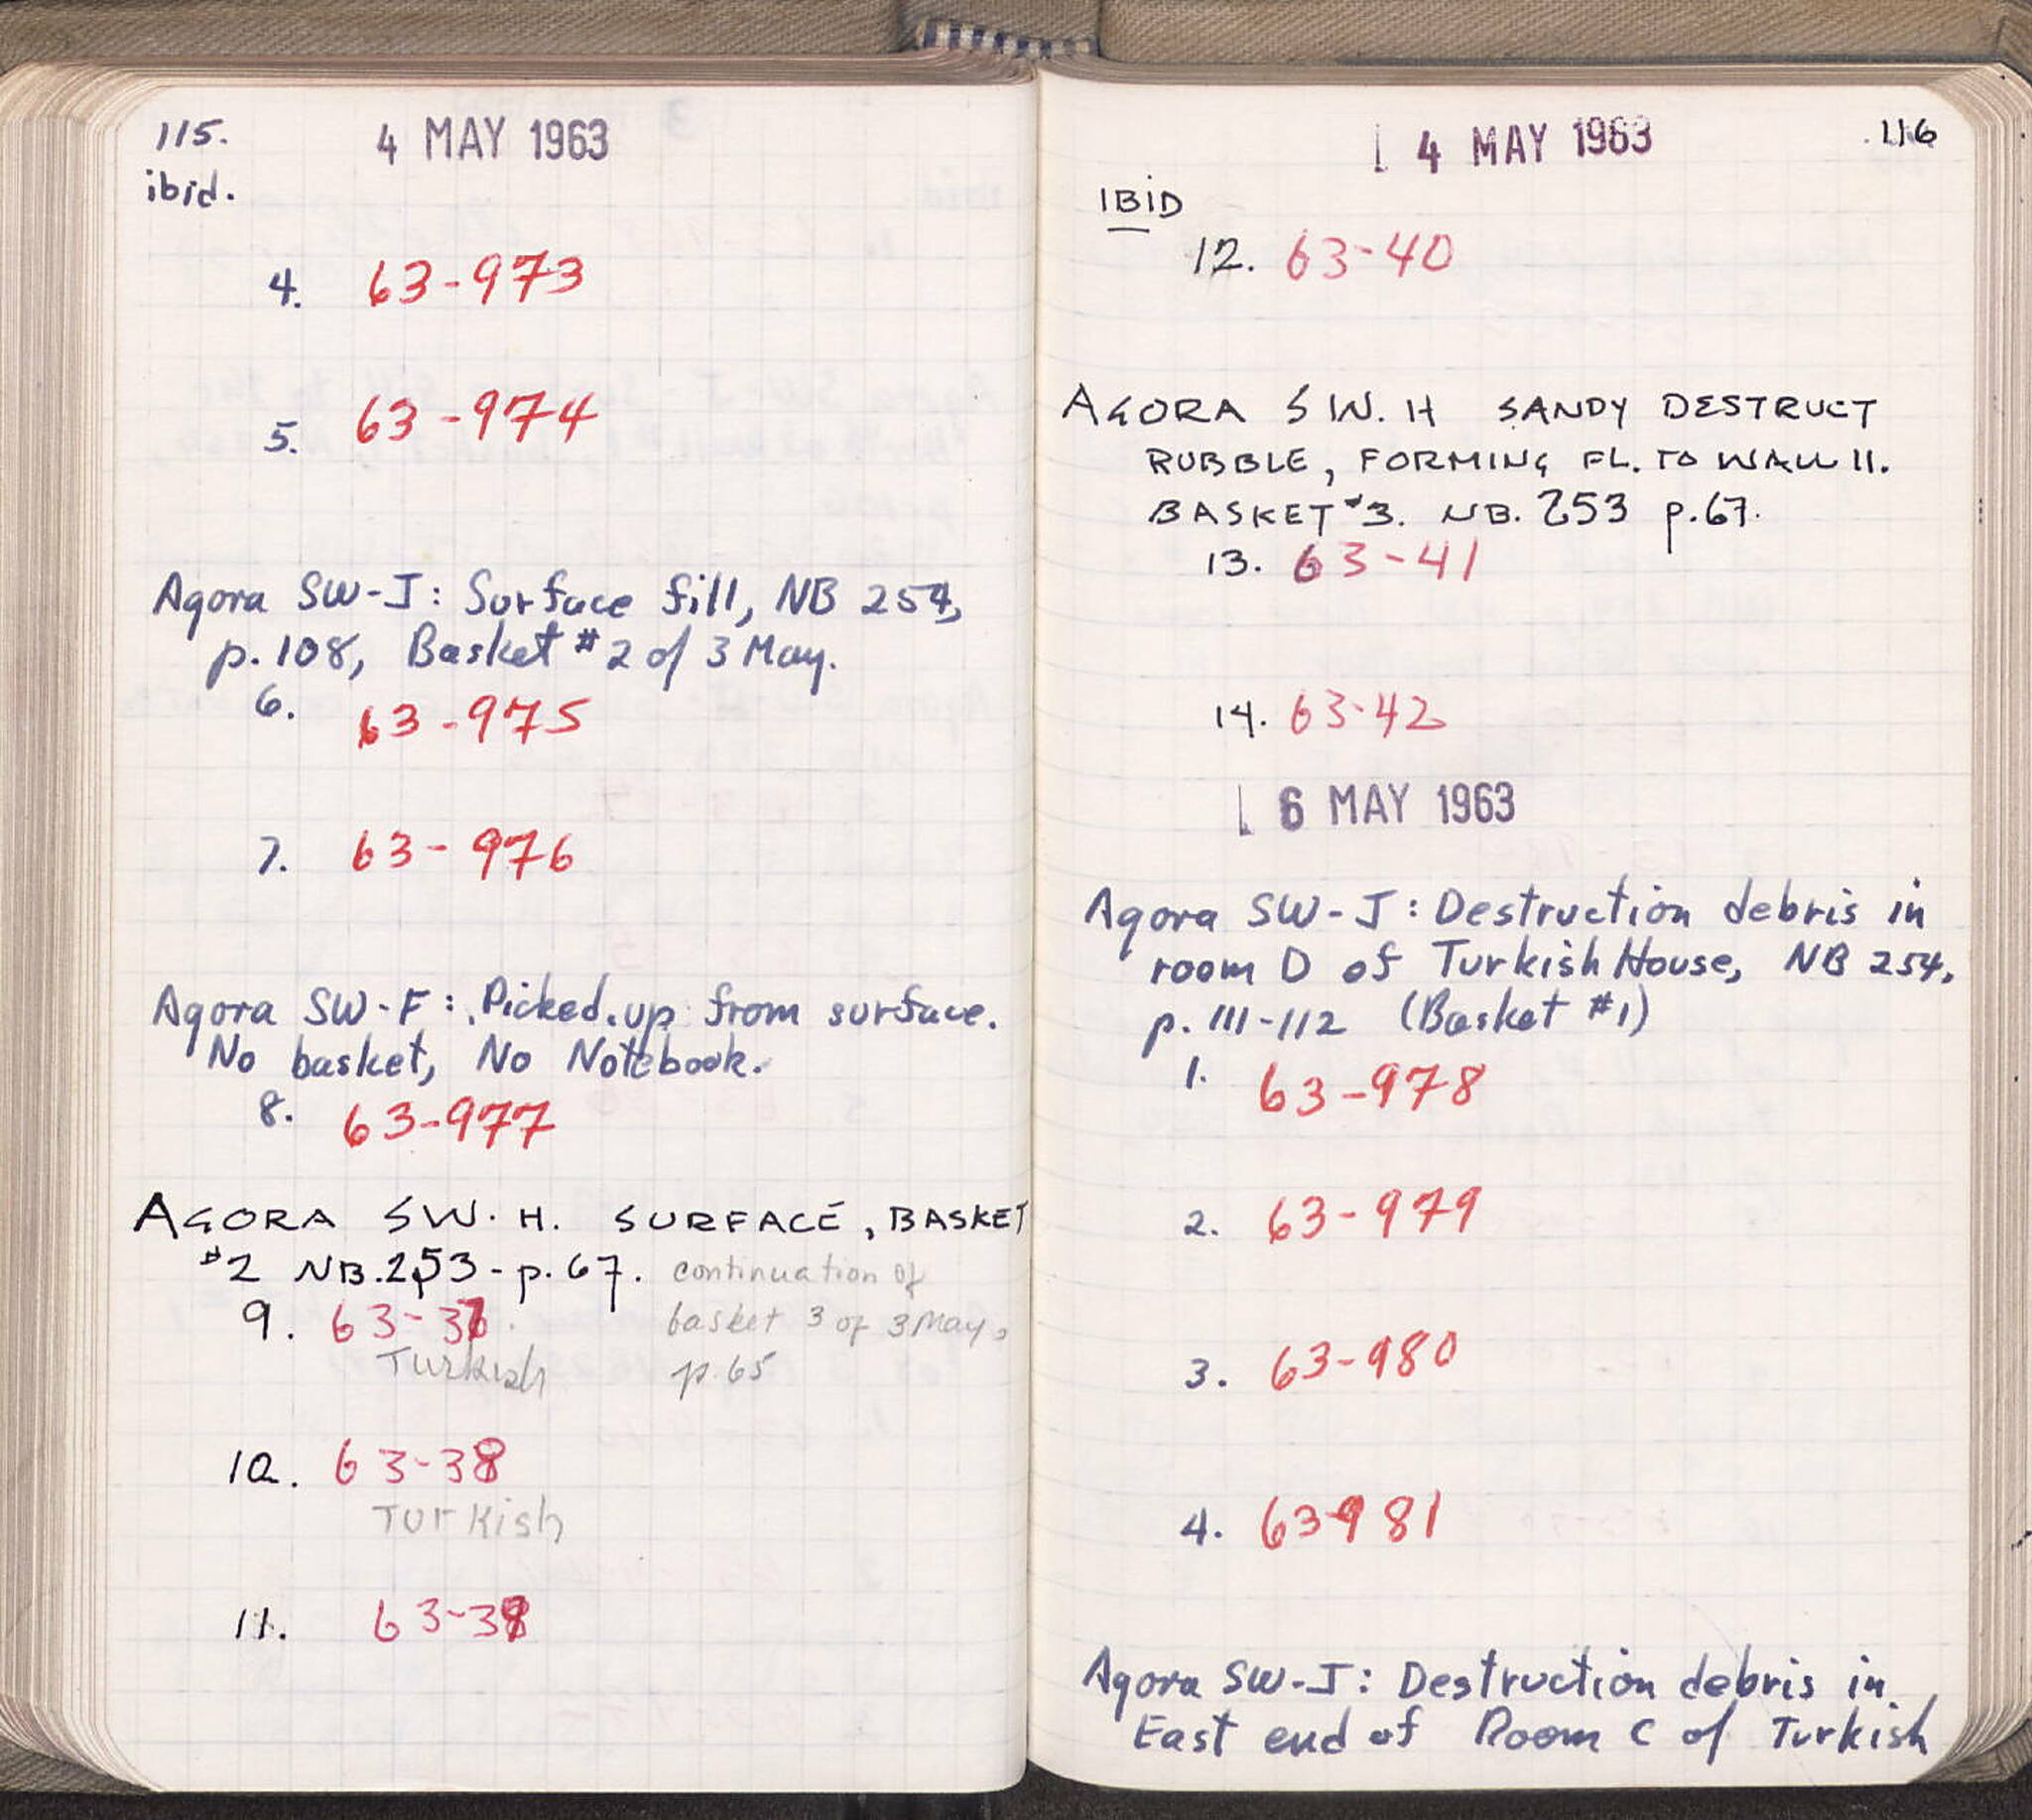 115.
4 MAY 1963
ibid.
4. 63-973
5. 63-974
Agora SW-J: Surface fill, NB 254,
p. 108, Basket #2 of 3 May.
6. 63-975
7. 63-976
Agora SW-F: Picked up from surface.
No basket, No Notebook.
8. 63-977
AGORA SW. H. SURFACE, BASKET
#2 NB. 253 - p. 67. continuation of
basket 3 of 3 May,
p. 65
9. 63-37.
Turkish
10. 63-38
Turkish
11. 63-39
4 MAY 1963
116
IBID
12. 63-40
AGORA SW. H SANDY DESTRUCT
RUBBLE, FORMING FL. TO WALL 11.
BASKET #3. NB. 253 p. 67.
13. 63-41
14. 63-42
6 MAY 1963
Agora SW-J: Destruction debris in
room D of Turkish House, NB 254,
p. 111-112 (Basket #1)
1. 63-978
2. 63-979
3. 63-980
4. 63-981
Agora SW-J: Destruction debris in
East end of Room C of Turkish